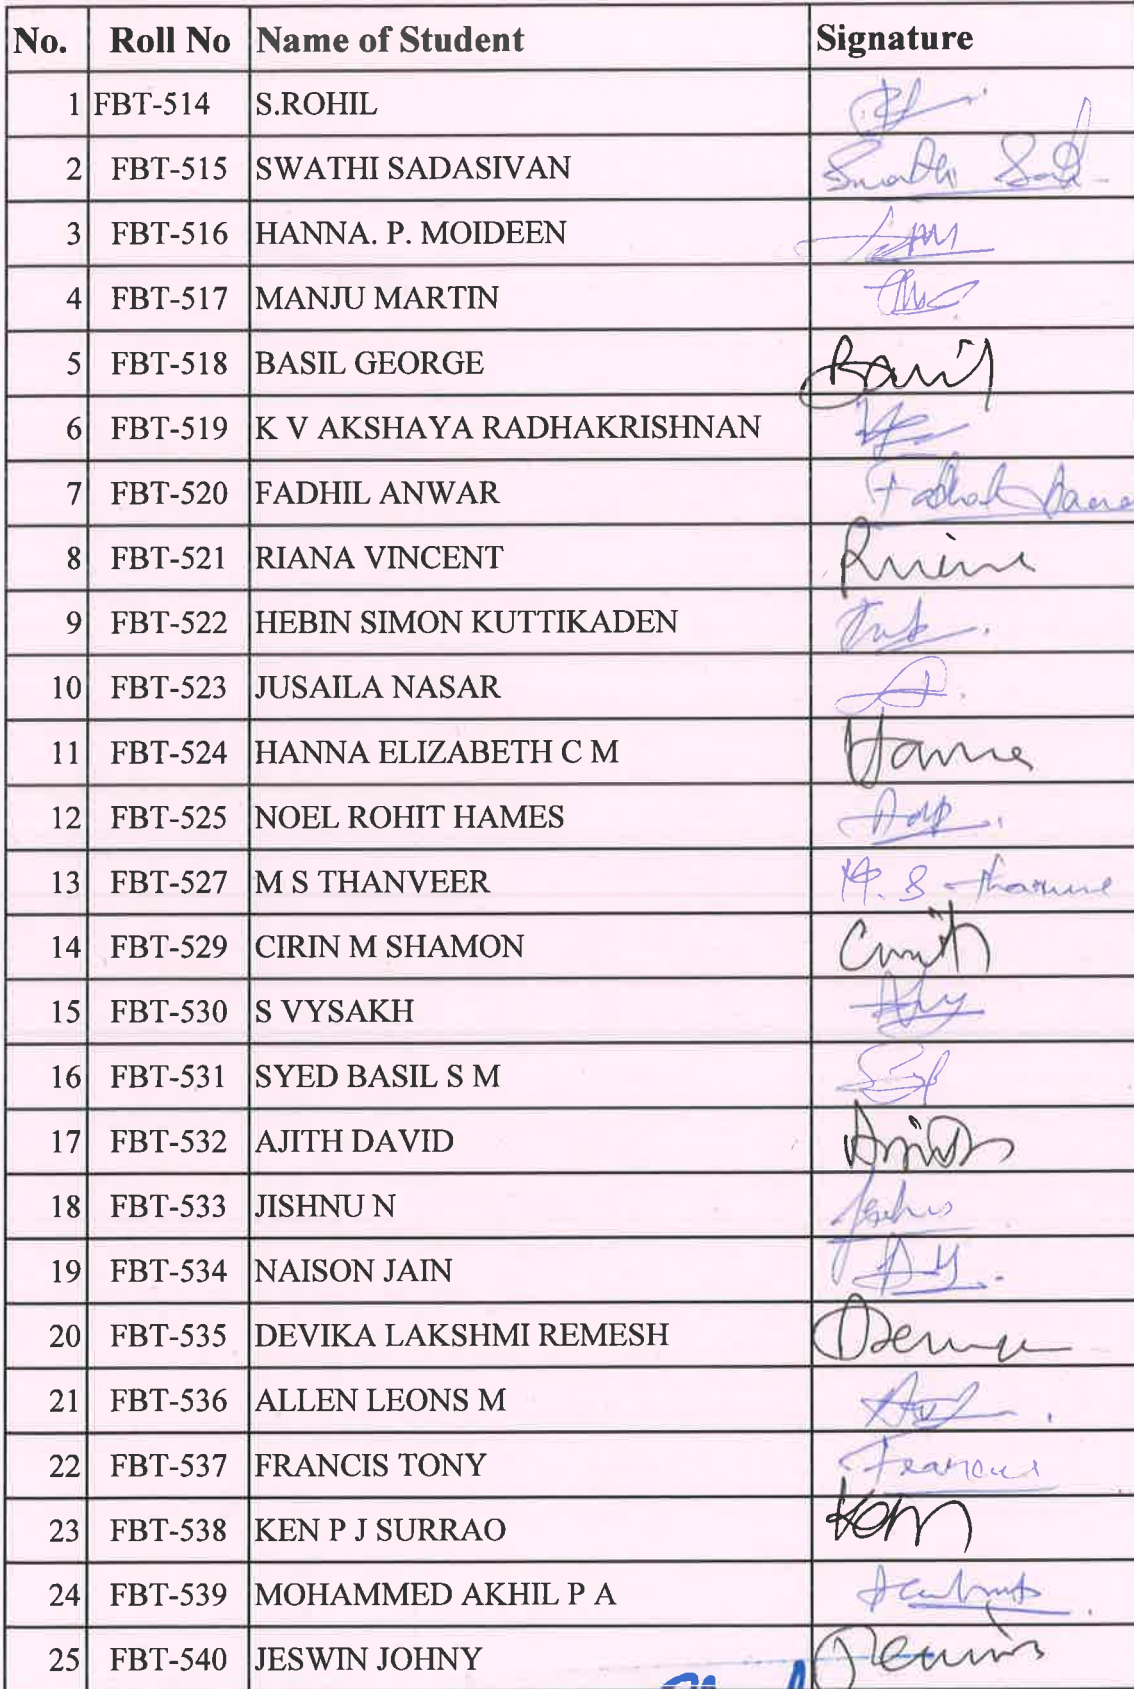 No. Roll No Name of Student Signature
1 FBT-514 S.ROHIL
2 FBT-515 SWATHI SADASIVAN Swathi Sad
3 FBT-516 HANNA. P. MOIDEEN
4 FBT-517 MANJU MARTIN
5 FBT-518 BASIL GEORGE Basil
6 FBT-519 K V AKSHAYA RADHAKRISHNAN
7 FBT-520 FADHIL ANWAR
8 FBT-521 RIANA VINCENT
9 FBT-522 HEBIN SIMON KUTTIKADEN
10 FBT-523 JUSAILA NASAR
11 FBT-524 HANNA ELIZABETH C M Hanna
12 FBT-525 NOEL ROHIT HAMES
13 FBT-527 M S THANVEER M. S
14 FBT-529 CIRIN M SHAMON
15 FBT-530 S VYSAKH
16 FBT-531 SYED BASIL S M
17 FBT-532 AJITH DAVID Ajith
18 FBT-533 JISHNU N
19 FBT-534 NAISON JAIN
20 FBT-535 DEVIKA LAKSHMI REMESH
21 FBT-536 ALLEN LEONS M
22 FBT-537 FRANCIS TONY Francis
23 FBT-538 KEN P J SURRAO Ken
24 FBT-539 MOHAMMED AKHIL P A
25 FBT-540 JESWIN JOHNY